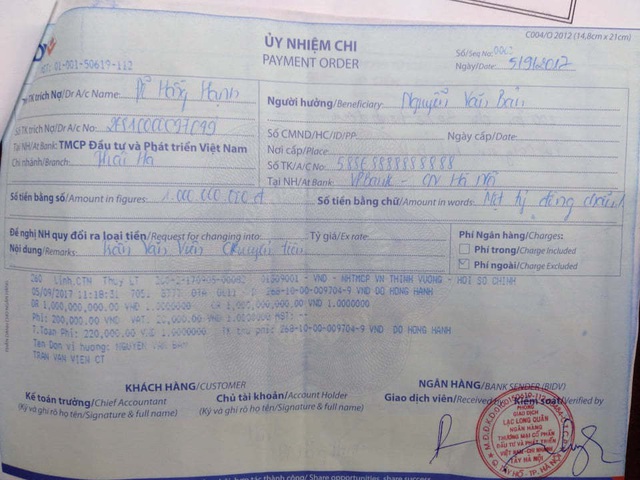 C004/O 2012 (14,8cm x 21cm)
ỦY NHIỆM CHI
PAYMENT ORDER
Số/Seq No:
Ngày/Date: 5/9/2017
MST: 01-001-50619-112
Tên TK trích Nợ/Dr A/c Name: Đỗ Hồng Hạnh
Số TK trích Nợ/Dr A/c No:
Tại NH/At Bank: TMCP Đầu tư và Phát triển Việt Nam
Chi nhánh/Branch: Thái Hà
Người hưởng/Beneficiary: Nguyễn Văn Bản
Số CMND/HC/ID/PP: Ngày cấp/Date:
Nơi cấp/Place:
Số TK/A/C No:
Tại NH/At Bank: VPBank - CN Hà Nội
Số tiền bằng số/Amount in figures: 1.000.000.000 đ
Số tiền bằng chữ/Amount in words: Một tỷ đồng chẵn
Đề nghị NH quy đổi ra loại tiền/Request for changing into: Tỷ giá/Ex rate:
Nội dung/Remarks: Trần Văn Viên chuyển tiền
Phí Ngân hàng/Charges:
Phí trong/Charge Included
Phí ngoài/Charge Excluded
Linh,CTN Thuy LT - VND - NHTMCP VN THINH VUONG - HOI SO CHINH
05/09/2017 11:18:31 268-10-00-009704-9 VND DO HONG HANH
DR 1,000,000,000.00 VND 1.0000000 CR 1,000,000,000.00 VND 1.0000000
Phi: 200,000.00 VND VAT: 20,000.00 VND
T.Toan Phi: 220,000.00 VND 1.0000000 TK tra phi: 268-10-00-009704-9 VND DO HONG HANH
Ten Don vi huong: NGUYEN VAN BAN
TRAN VAN VIEN CT
KHÁCH HÀNG/CUSTOMER
Kế toán trưởng/Chief Accountant
(Ký và ghi rõ họ tên/Signature & full name)
Chủ tài khoản/Account Holder
(Ký và ghi rõ họ tên/Signature & full name)
NGÂN HÀNG/BANK SENDER (BIDV)
Giao dịch viên/Received by Kiểm soát/Verified by
PHÒNG
GIAO DỊCH
LẠC LONG QUÂN
NGÂN HÀNG
THƯƠNG MẠI CỔ PHẦN
ĐẦU TƯ VÀ PHÁT TRIỂN
VIỆT NAM-CHI NHÁNH
TÂY HÀ NỘI
Q. TÂY HỒ - TP. HÀ NỘI
hợp tác thành công/ Share opportunities, share success